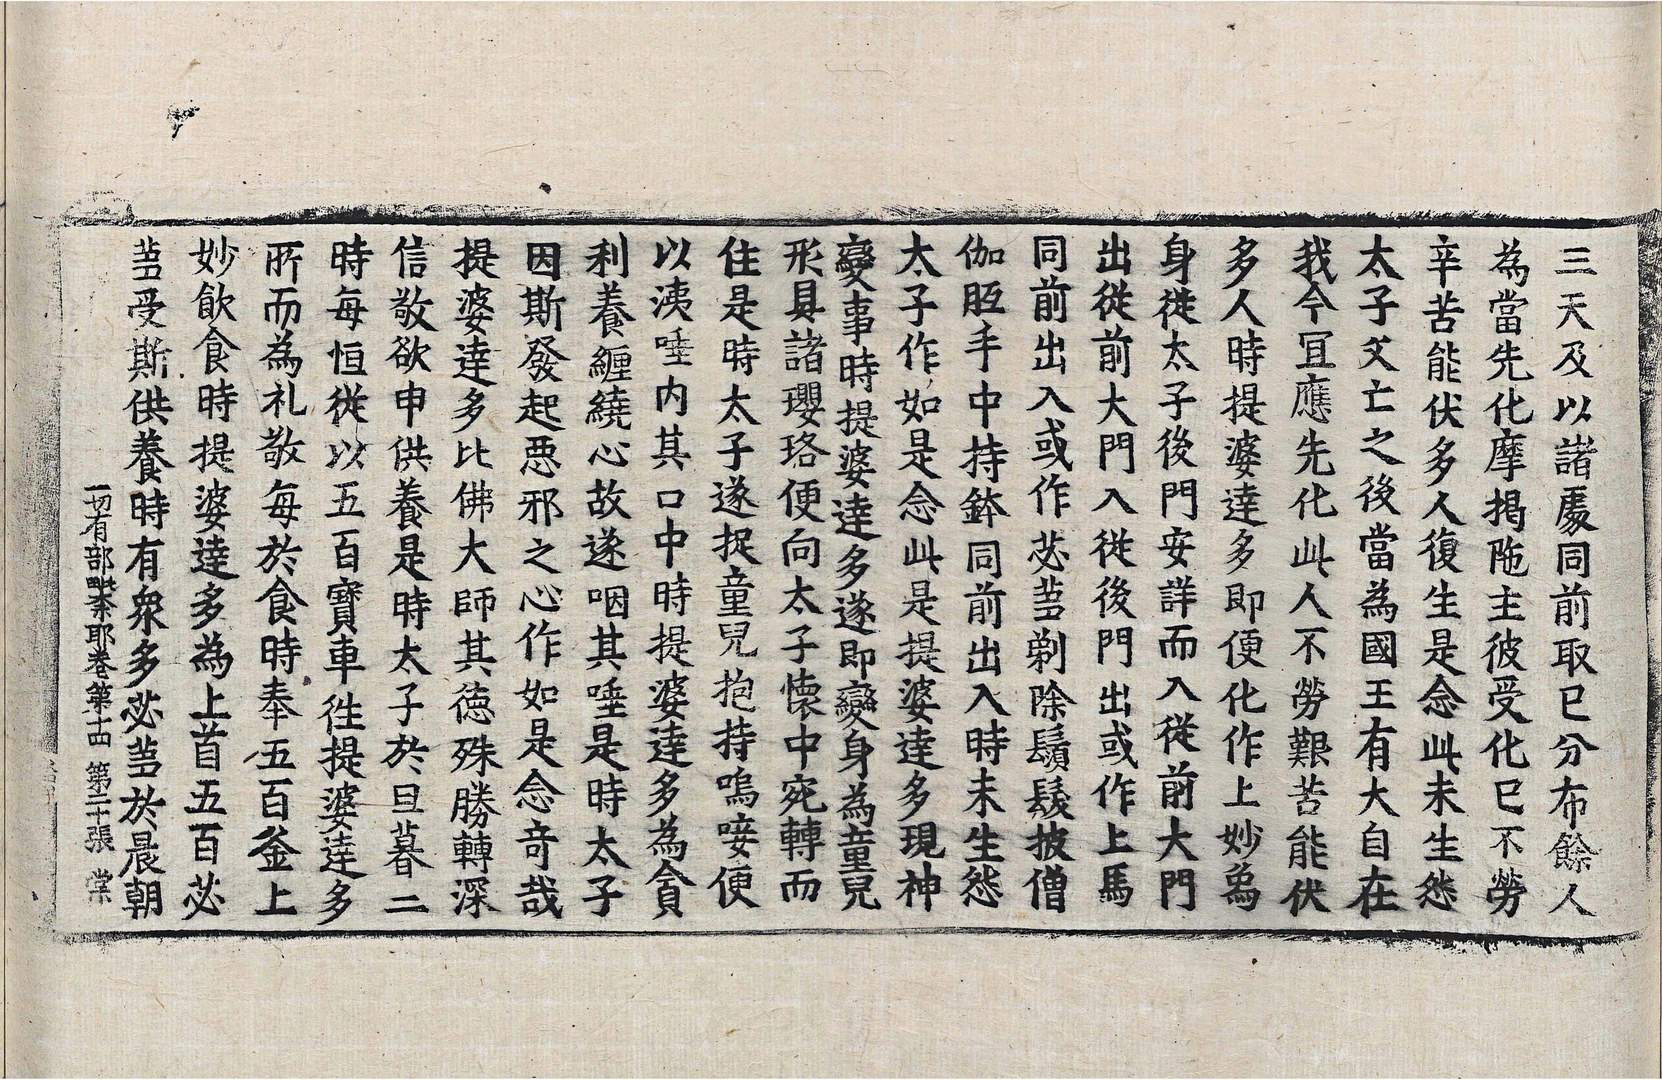 三天及以諸處同前取已分布餘人
為當先化摩揭陁主彼受化已不勞
辛苦能伏多人復生是念此未生怨
太子父亡之後當為國王有大自在
我今冝應先化此人不勞艱苦能伏
多人時提婆達多即便化作上妙為
身從太子後門安詳而入從前大門
出從前大門入從後門出或作上馬
同前出入或作苾蒭剃除鬚髮披僧
伽胝手中持鉢同前出入時未生怨
太子作如是念此是提婆達多現神
變事時提婆達多遂即變身為童兒
形具諸瓔珞便向太子懷中宛轉而
住是時太子遂捉童兒抱持嗚唼便
以洟唾内其口中時提婆達多為貪
利養纏繞心故遂咽其唾是時太子
因斯發起惡邪之心作如是念奇哉
提婆達多比佛大師其德殊勝轉深
信敬欲申供養是時太子於旦暮二
時每恒從以五百寶車徃提婆達多
所而為礼敬每於食時奉五百釜上
妙飲食時提婆達多為上首五百苾
蒭受斯供養時有衆多苾蒭於晨朝
一切有部毗柰耶卷第十四 第二十張 棠